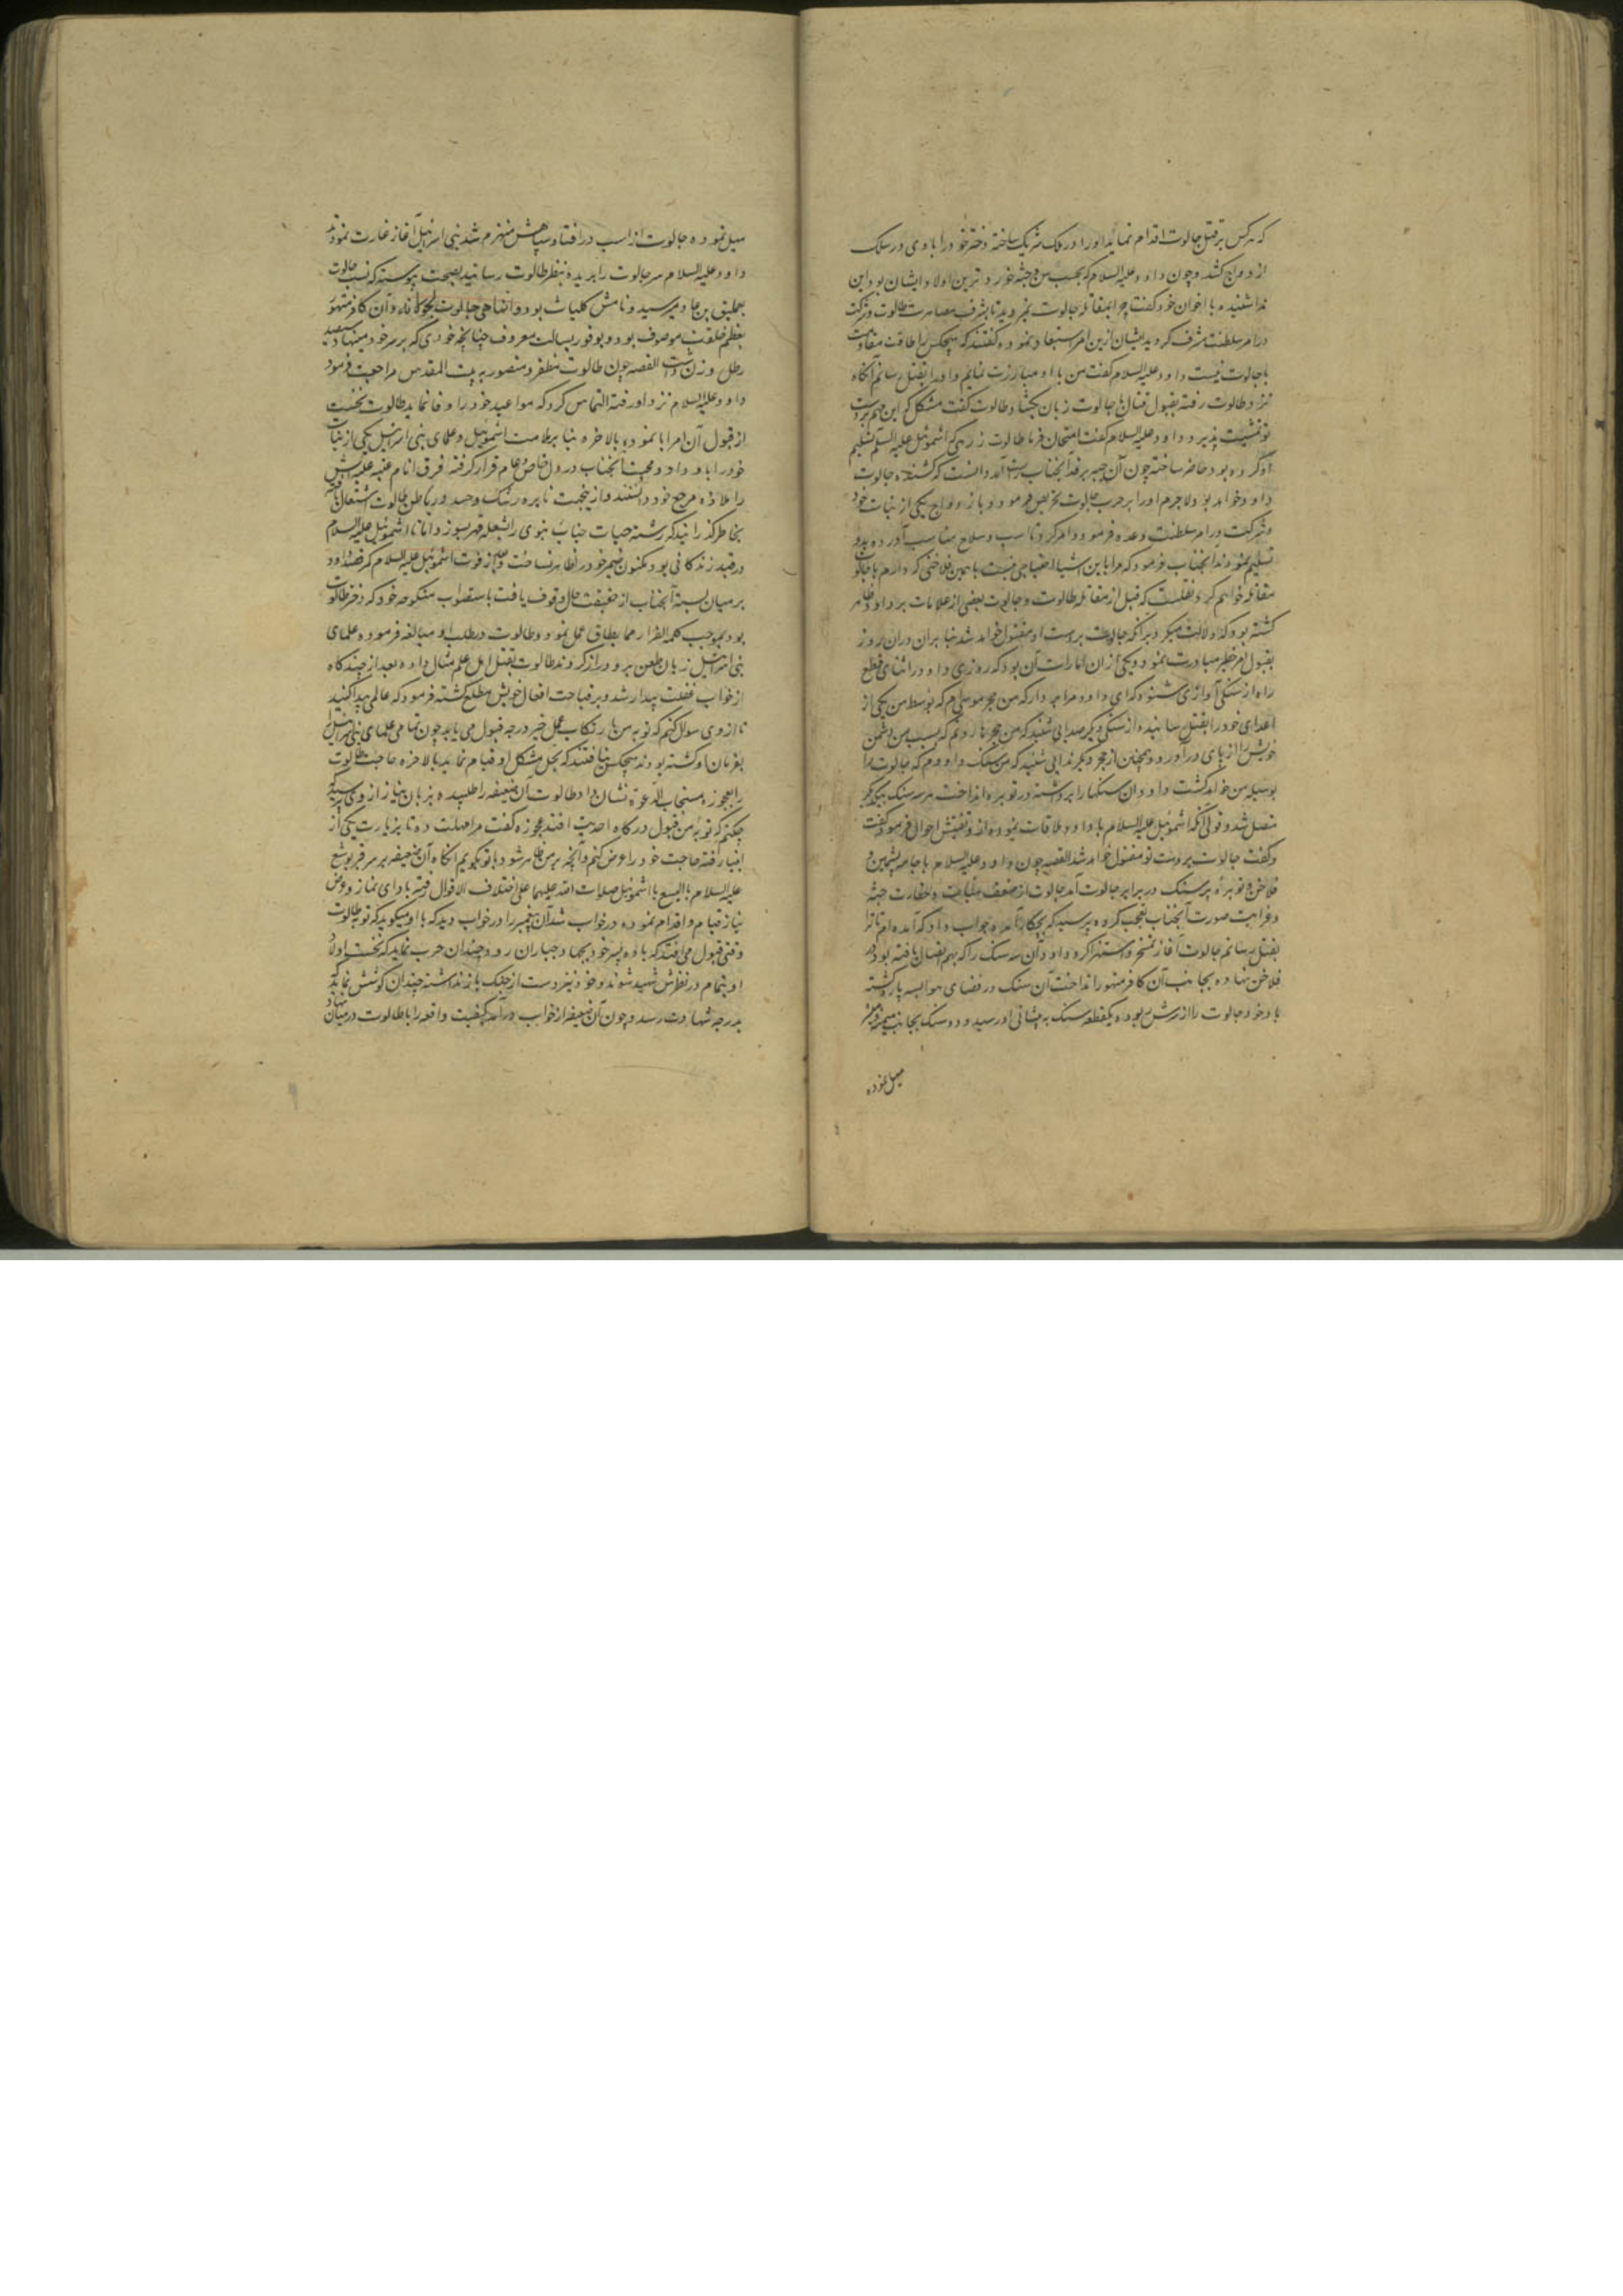 که هرکس بر قتل جالوت اقدام نماید او را در ملک شریک ساخته دختر خود را با وی در سلک
ازدواج کشد و چون داود علیه السلام که بحسب سن و جثه خوردترین اولاد ایشان بود این
ندا شنیده با اخوان خود گفت چرا بمقاتله جالوت نمیروید تا بشرف مصاهرت طالوت و شرکت
در امر سلطنت مشرف کردید ایشان ازین امر استبعاد نموده گفتند که هیچکس را طاقت مقاومت
با جالوت نیست داود علیه السلام گفت من با او مبارزت نمایم و او را بقتل رسانم آنکاه
نزد طالوت رفته بقبول قتال جالوت زبان بکشاد طالوت گفت مشکل که این مهم بر دست
تو تمشیت پذیرد داود علیه السلام گفت امتحان فرما طالوت زرهی که اشموئیل علیه السلام تسلیم
او کرده بود حاضر ساخته چون آن جیبه بر قد آنجناب راست آمد دانست که کشنده جالوت
داود خواهد بود لاجرم او را بر حرب جالوت تحریص فرمود و بازدواج یکی از بنات خود
و شرکت در امر سلطنت وعده فرمود و امر کرد تا اسب و سلاح مناسب آورده بدو
تسلیم نمودند آنجناب فرمود که مرا باین اشیا احتیاجی نیست با همین فلاخنی که دارم با جالوت
مقاتله خواهم کرد و نقلست که قبل از مقاتله طالوت و جالوت بعضی از علامات بر داود ظاهر
کشته بود که دلالت میکرد بر آنکه جالوت بر دست او مقتول خواهد شد بنا بران دران روز
بقبول امر خطیر مبادرت نمود و یکی از ان امارات آن بود که روزی داود در اثنای قطع
راه از سنکی آوازی شنود که ای داود مرا بردار که من حجر موسی ام که بوسط من یکی از
اعدای خود را بقتل رسانیده از سنکی دیکر صدایی شنید که من حجر هارونم که بسبب من دشمن
خویش را از پای درآورد و همچنین از حجر دیکر ندایی شنید که من سنک داودم که جالوت را
بوسیله من خواهد کشت داود ان سنکها را برداشته در توبره انداخت هر سه سنک بیکدیکر
متصل شد و قولی آنکه اشموئیل علیه السلام با داود ملاقات نموده از و تفتیش احوال فرمود
و گفت جالوت بر دست تو مقتول خواهد شد القصه چون داود علیه السلام با جامه پشمین و
فلاخن و توبره پر سنک در برابر جالوت آمد جالوت از ضعف بنیات و حقارت جثه
و غرابت صورت آنجناب تعجب کرده پرسید که بچکار آمده جواب داد که آمده ام تا ترا
بقتل رسانم جالوت آغاز تمسخر و استهزا کرد و داود آن سه سنک را که بهم اتصال یافته بود در
فلاخن نهاده بجانب آن کافر متهور انداخت آن سنک در فضای هوا سه پاره کشته
باد خود جالوت را از سرش ربوده یکقطعه سنک به پیشانی او رسید و دو سنک بجانب میمنه و میسره
میل نموده
میل نموده جالوت از اسب درافتاد و سپاهش منهزم شد بنی اسرائیل آغاز غارت نمودند
داود علیه السلام سر جالوت را بریده بنظر طالوت رسانید بصحت پیوسته که نسب جالوت
بعملیق بن عاد میرسید و نامش کلیات بود و آن کافر متهور
بعظم خلقت موصوف بود و بوفور بسالت معروف چنانچه خودی که بر سر خود مینهاد سیصد
رطل وزن داشت القصه چون طالوت مظفر و منصور به بیت المقدس مراجعت فرمود
داود علیه السلام نزد او رفته التماس کرد که مواعید خود را وفا نماید طالوت نخست
از قبول آن امر ابا نموده بالاخره بنا بر ملامت اشموئیل و علمای بنی اسرائیل یکی از بنات
خود را باو داد و محبت آنجناب در دل خاص و عام قرار گرفته فرق انام عتبه علیه اش
را ملاذ و مرجع خود دانستند و ازینجهت نایره رشک و حسد در باطن طالوت اشتعال یافته
بخاطر گذرانید که رشته حیات جناب نبوی را بشعله قهر بسوزد اما تا اشموئیل علیه السلام
در قید زندکانی بود مکنون ضمیر خود را ظاهر نساخت و بعد از فوت اشموئیل علیه السلام کمر قصد داود
بر میان بسته آنجناب از حقیقت حال وقوف یافت باستصواب منکوحه خود که دختر طالوت
بود بموجب کلمه الفرار مما یطاق عمل نمود و طالوت در طلب او مبالغه فرموده علمای
بنی اسرائیل زبان طعن برو دراز کردند طالوت بقتل اهل علم مثال داده بعد از چندکاه
از خواب غفلت بیدار شد و بر قباحت افعال خویش مطلع کشته فرمود که عالمی پیدا کنید
تا از وی سوال کنم که توبه من بارتکاب عمل خیر درجه قبول می یابد چون تمامی علمای بنی اسرائیل
بفرمان او کشته بودند هیچکس نیافتند که بحل مشکل او قیام نماید بالاخره حاجب طالوت
را بعجوزه مستجاب الدعوة نشان داد طالوت آن ضعیفه را طلبیده بزبان نیاز از وی پرسید
چکنم که توبه من قبول درکاه احدیت افتد عجوزه گفت مرا مهلت ده تا بزیارت یکی از
انبیا رفته حاجت خود را عرض کنم و آنچه بر من ظاهر شود با تو بکویم آنکاه آن ضعیفه بر سر قبر یوشع
علیه السلام یا الیسع یا اشموئیل صلوات الله علیهما علی اختلاف الاقوال رفته بادای نماز و عرض
نیاز قیام و اقدام نموده در خواب شد آن پیغمبر را در خواب دید که با او میکوید که توبه طالوت
وقتی قبول می افتد که با ده پسر خود بجهاد جباران رود و چندان حرب نماید که نخست اولاد
او بتمام در نظرش شهید شوند و خود نیز دست از جنک باز نداشته چندان کوشش نماید که
بدرجه شهادت رسد و چون آن ضعیفه از خواب درآمد کیفیت واقعه را با طالوت در میان نهاد